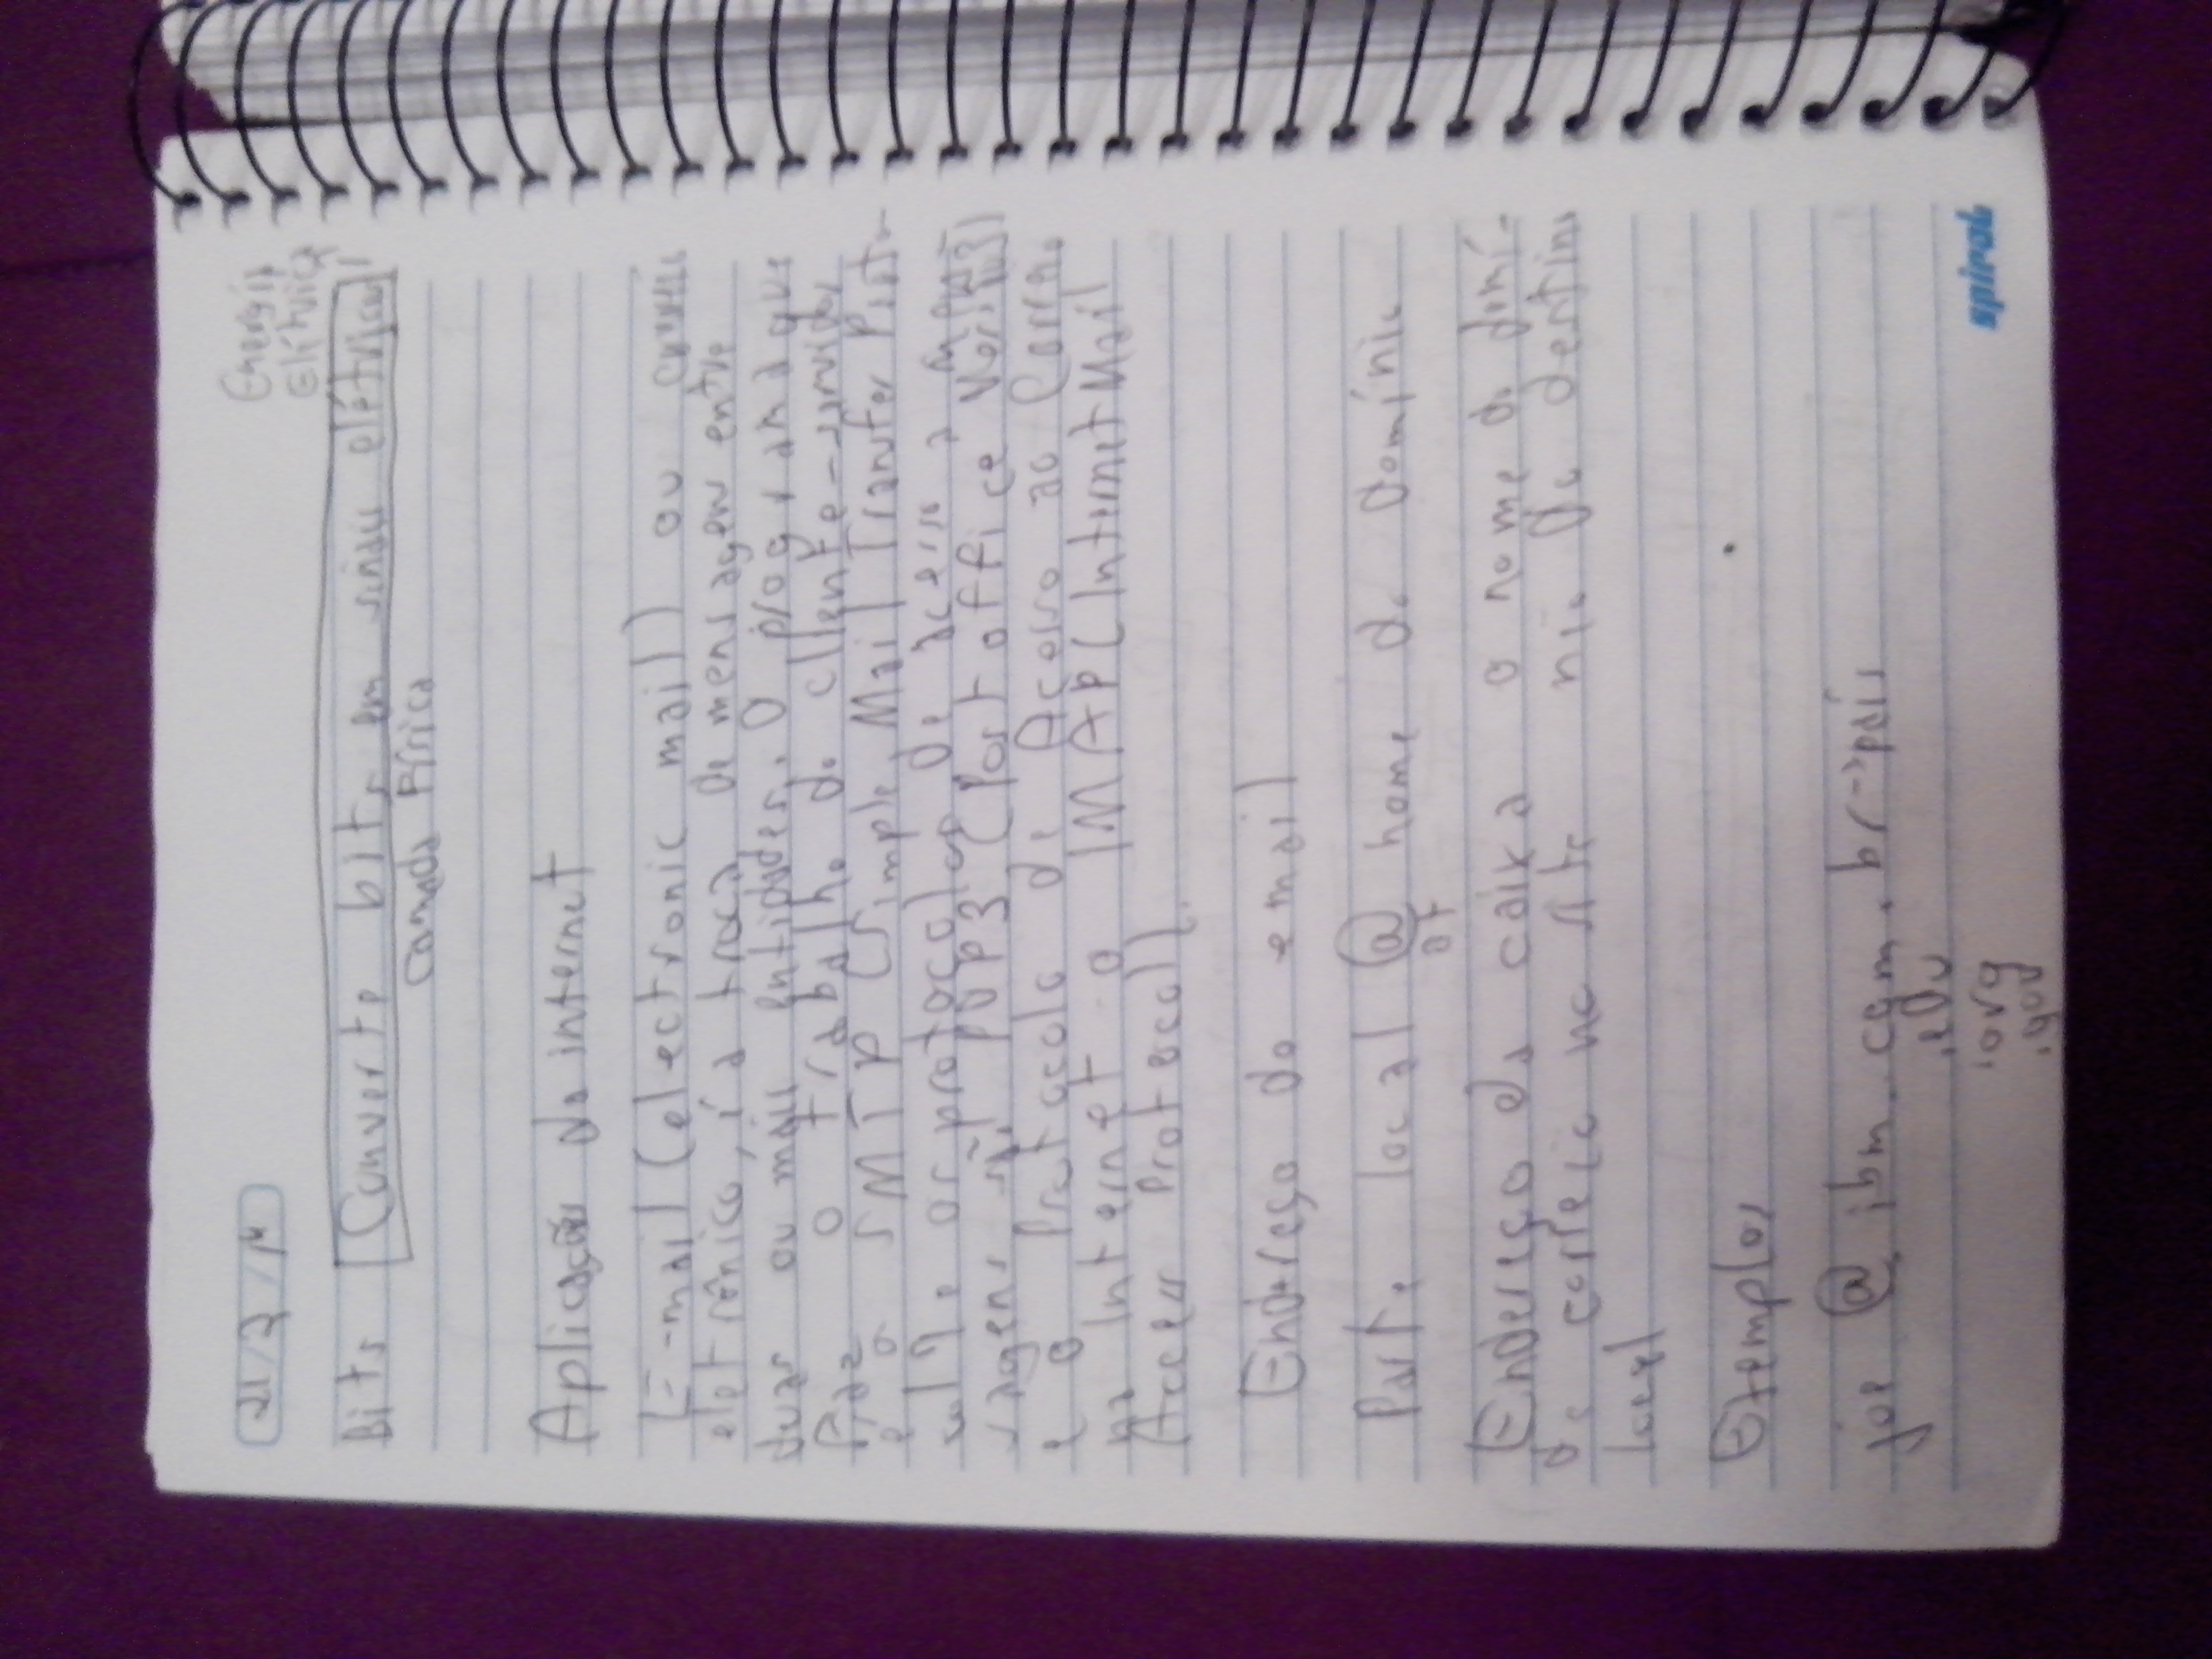 Energia
Elétrica
Bits Converte bits em sinais elétricos
Camada Física
Aplicações da internet
E-mail (electronic mail) ou correio
eletrônico, é a troca de mensagens entre
duas ou mais entidades. O programa que
faz o trabalho do cliente-servidor
é o SMTP (Simple Mail Transfer Proto-
col) e os protocolos de acesso a men-
sagens são POP3 (Post office Version3)
e o Protocolo de Acesso ao Correio
na Internet o IMAP (Internet Mail
Access Protocol).
Endereço do email
Parte local @ nome do domínio
at
Endereço da caixa o nome do domí-
de correio no site nio do destino
local
Exemplos
joe @ ibm.com.br->país
.edu
.org
.gov
spiral